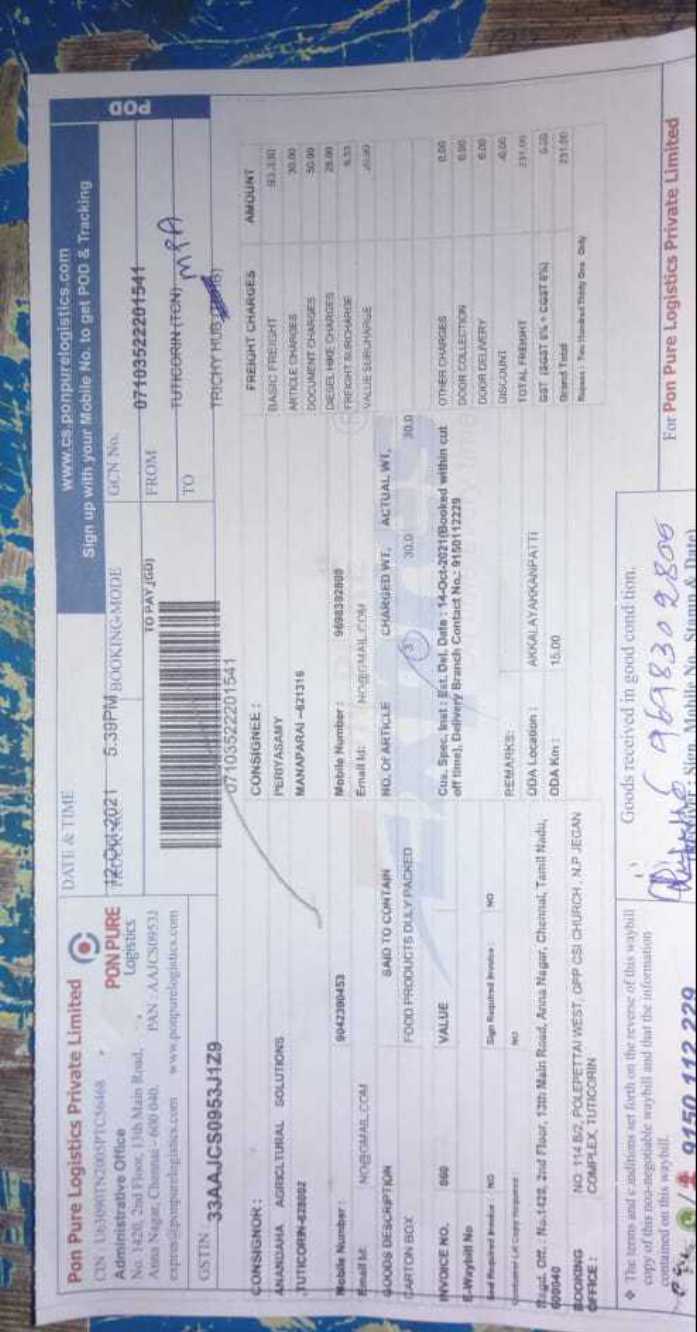 Pon Pure Logistics Private Limited
Administrative Office
No. 1420, 2nd Floor, 13th Main Road,
Anna Nagar, Chennai - 600 040.
www.ponpurelogistics.com
PON PURE
Logistics
PAN : AAJCS0953J
GSTIN 33AAJCS0953J1Z9
DATE & TIME
12-Oct-2021 5.39PM
BOOKING MODE
TO PAY (GD)
07103522201541
www.cs.ponpurelogistics.com
Sign up with your Mobile No. to get POD & Tracking
POD
GCN No. 07103522201541
FROM TUTICORIN (TCN)
MPA
TO TRICHY HUB
CONSIGNOR :
ANANDAHA AGRICLTURAL SOLUTIONS
TUTICORIN-628002
Mobile Number : 9042390453
Email Id: NO@GMAIL.COM
CONSIGNEE :
PERIYASAMY
MANAPARAI -621316
Mobile Number : 9698392800
Email Id: NO@GMAIL.COM
GOODS DESCRIPTION SAID TO CONTAIN NO. OF ARTICLE CHARGED WT, ACTUAL WT,
CARTON BOX FOOD PRODUCTS DULY PACKED 3 30.0 30.0
INVOICE NO. 860 VALUE
E-Waybill No
Sign Required Invoice : NO
NO
Cus. Spec, Inst : Est. Del. Date : 14-Oct-2021(Booked within cut
off time), Delivery Branch Contact No.: 9150112229
REMARKS:
ODA Location : AKKALAYAKKANPATTI
ODA Km : 15.00
Regd. Off. : No.1420, 2nd Floor, 13th Main Road, Anna Nagar, Chennai, Tamil Nadu,
600040
BOOKING OFFICE : NO 114 B/2, POLEPETTAI WEST, OPP CSI CHURCH , N.P JEGAN
COMPLEX, TUTICORIN
FREIGHT CHARGES AMOUNT
BASIC FREIGHT
ARTICLE CHARGES 30.00
DOCUMENT CHARGES 50.00
DIESEL HIKE CHARGES 28.00
FREIGHT SURCHARGE
VALUE SURCHARGE
OTHER CHARGES 0.00
DOOR COLLECTION 0.00
DOOR DELIVERY 0.00
DISCOUNT
TOTAL FREIGHT 231.00
GST 0.00
Grand Total 231.00
Rupees : Two Hundred Thirty One Only
The terms and conditions set forth on the reverse of this waybill
copy of this non-negotiable waybill and that the information
contained on this waybill.
Goods received in good condition.
9698302806
For Pon Pure Logistics Private Limited
9150 112 229